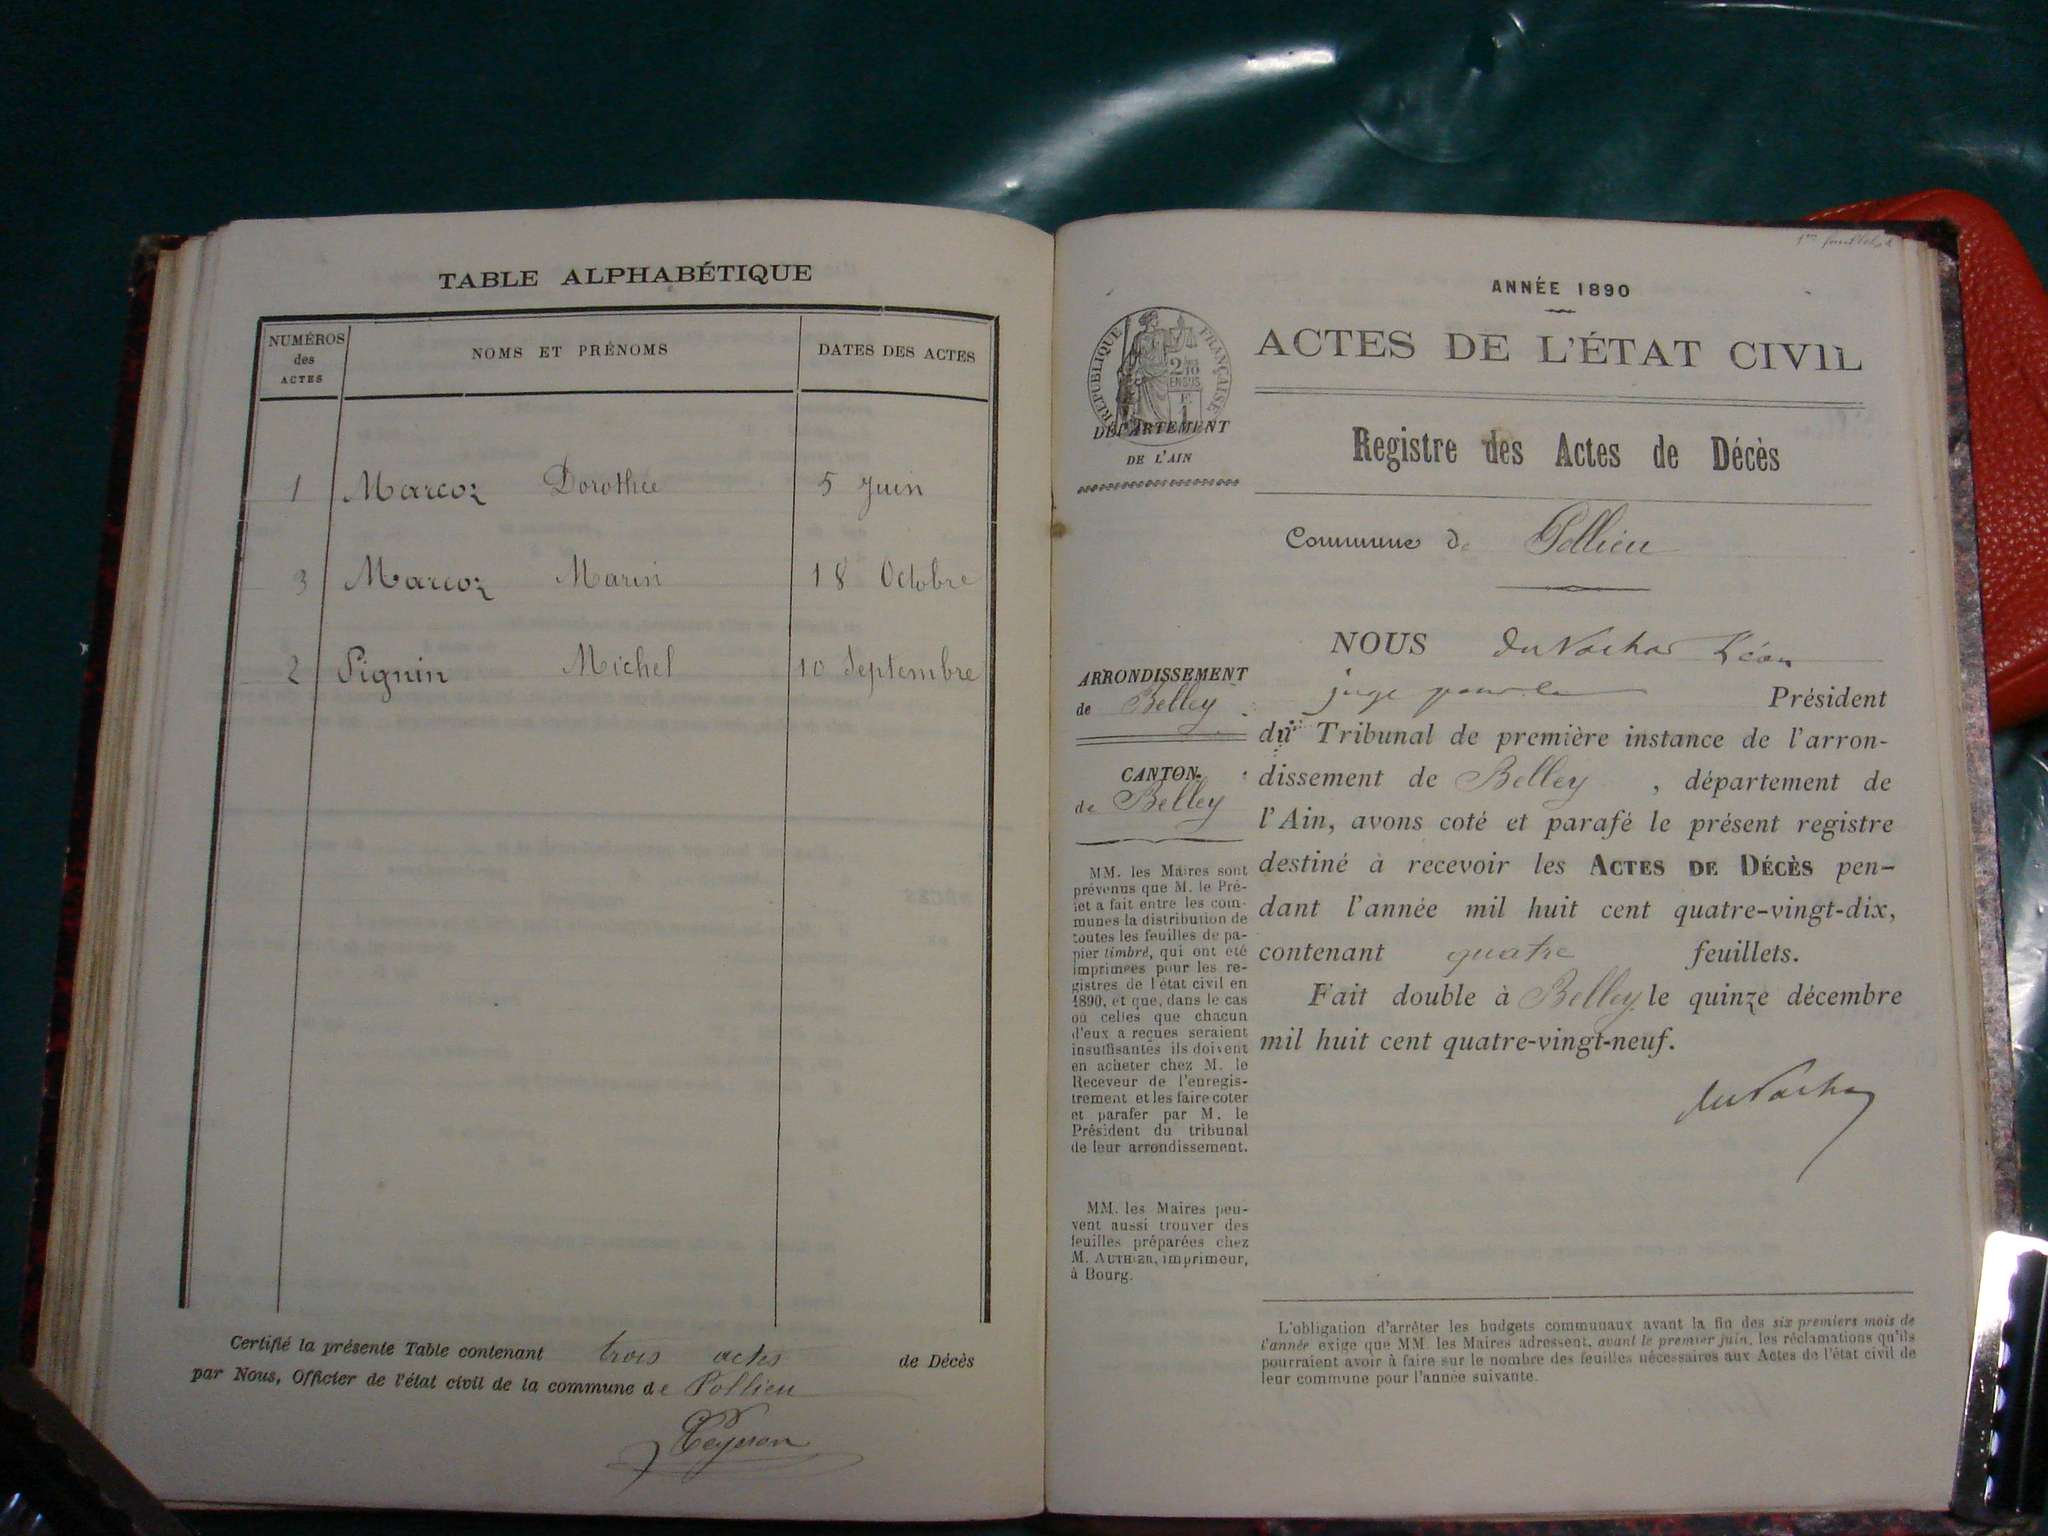 TABLE ALPHABÉTIQUE
NUMÉROS des ACTES
NOMS ET PRÉNOMS
DATES DES ACTES
1 Marcoz Dorothée 5 Juin
3 Marcoz Marin 18 Octobre
2 Pignin Michel 10 Septembre
Certifié la présente Table contenant trois actes de Décès
par Nous, Officier de l'état civil de la commune de Pollieu
ANNÉE 1890
ACTES DE L'ÉTAT CIVIL
RÉPUBLIQUE FRANÇAISE
DÉPARTEMENT
DE L'AIN
Registre des Actes de Décès
Commune de Pollieu
ARRONDISSEMENT
de Belley
CANTON
de Belley
MM. les Maires sont
prévenus que M. le Pré-
fet a fait entre les com-
munes la distribution de
toutes les feuilles de pa-
pier timbré, qui ont été
imprimées pour les re-
gistres de l'état civil en
1890, et que, dans le cas
où celles que chacun
d'eux a reçues seraient
insuffisantes ils doivent
en acheter chez M. le
Receveur de l'enregis-
trement et les faire coter
et parafer par M. le
Président du tribunal
de leur arrondissement.
MM. les Maires peu-
vent aussi trouver des
feuilles préparées chez
M. AUTHIER, imprimeur,
à Bourg.
NOUS Léon
juge pour le Président
du Tribunal de première instance de l'arron-
dissement de Belley, département de
l'Ain, avons coté et parafé le présent registre
destiné à recevoir les ACTES DE DÉCÈS pen-
dant l'année mil huit cent quatre-vingt-dix,
contenant quatre feuillets.
Fait double à Belley, le quinze décembre
mil huit cent quatre-vingt-neuf.
L'obligation d'arrêter les budgets communaux avant la fin des six premiers mois de
l'année exige que MM. les Maires adressent, avant le premier juin, les réclamations qu'ils
pourraient avoir à faire sur le nombre des feuilles nécessaires aux Actes de l'état civil de
leur commune pour l'année suivante.